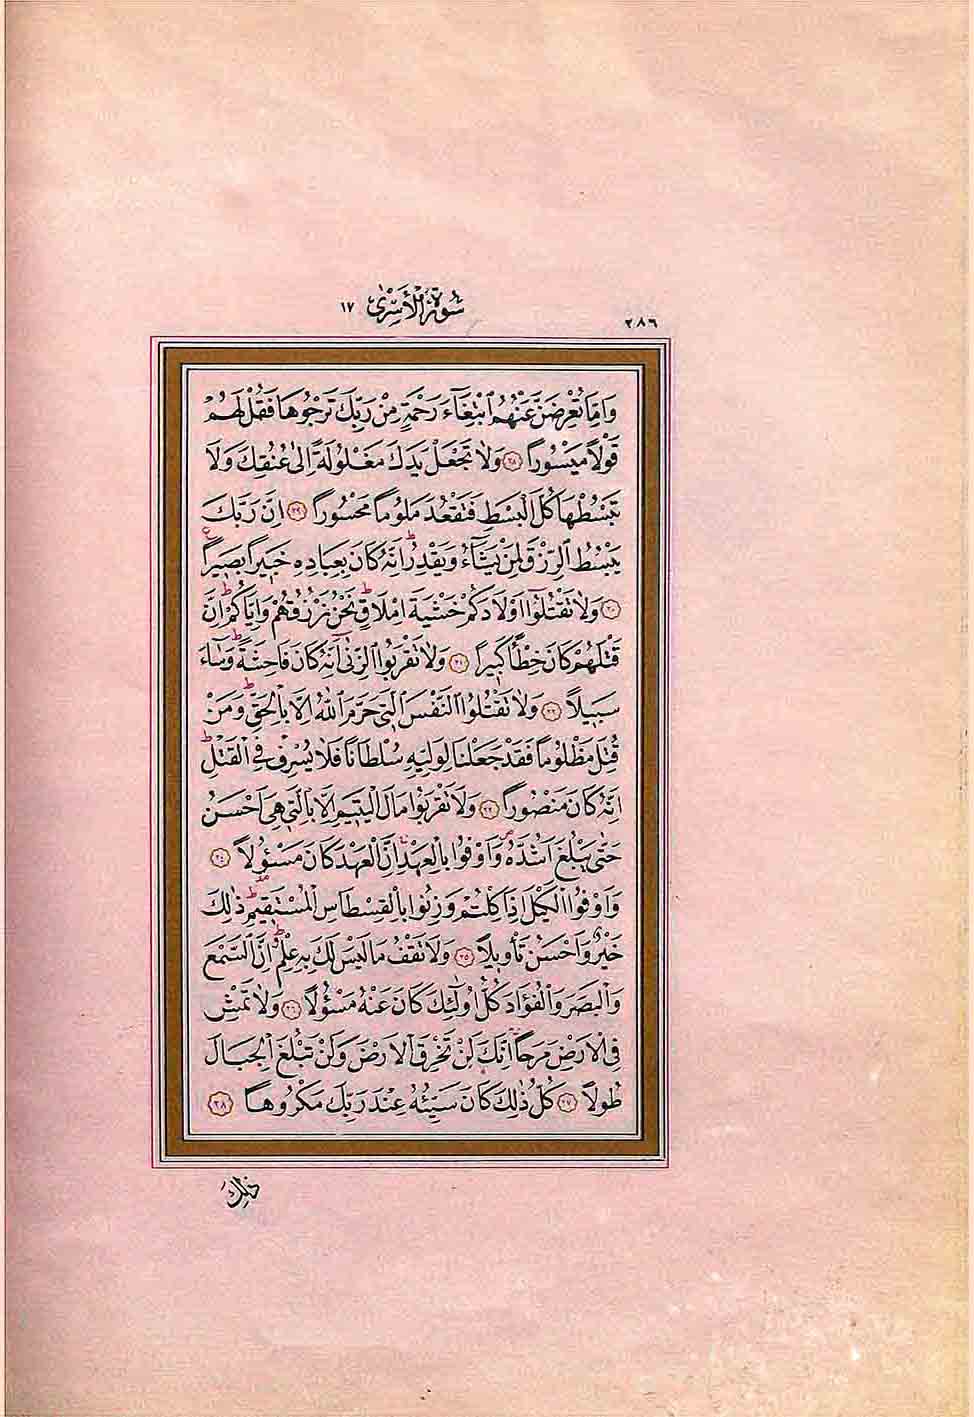 ٢٨٦
سُورَةُ الْأَسْرٰى ١٧
وَاِمَّا تُعْرِضَنَّ عَنْهُمُ ابْتِغَٓاءَ رَحْمَةٍ مِنْ رَبِّكَ تَرْجُوهَا فَقُلْ لَهُمْ
قَوْلًا مَيْسُورًا ﴿٢٨﴾ وَلَا تَجْعَلْ يَدَكَ مَغْلُولَةً اِلٰى عُنُقِكَ وَلَا
تَبْسُطْهَا كُلَّ الْبَسْطِ فَتَقْعُدَ مَلُومًا مَحْسُورًا ﴿٢٩﴾ اِنَّ رَبَّكَ
يَبْسُطُ الرِّزْقَ لِمَنْ يَشَٓاءُ وَيَقْدِرُ ط اِنَّهُ كَانَ بِعِبَادِهِ خَبِيرًا بَصِيرًا ع
﴿٣٠﴾ وَلَا تَقْتُلُٓوا اَوْلَادَكُمْ خَشْيَةَ اِمْلَاقٍ ط نَحْنُ نَرْزُقُهُمْ وَاِيَّاكُمْ ط اِنَّ
قَتْلَهُمْ كَانَ خِطْـًٔا كَبِيرًا ﴿٣١﴾ وَلَا تَقْرَبُوا الزِّنٰٓى اِنَّهُ كَانَ فَاحِشَةً ط وَسَٓاءَ
سَبِيلًا ﴿٣٢﴾ وَلَا تَقْتُلُوا النَّفْسَ الَّتِي حَرَّمَ اللّٰهُ اِلَّا بِالْحَقِّ ط وَمَنْ
قُتِلَ مَظْلُومًا فَقَدْ جَعَلْنَا لِوَلِيِّهِ سُلْطَانًا فَلَا يُسْرِفْ فِي الْقَتْلِ ط
اِنَّهُ كَانَ مَنْصُورًا ﴿٣٣﴾ وَلَا تَقْرَبُوا مَالَ الْيَتِيمِ اِلَّا بِالَّتِي هِيَ اَحْسَنُ
حَتّٰى يَبْلُغَ اَشُدَّهُ ص وَاَوْفُوا بِالْعَهْدِ اِنَّ الْعَهْدَ كَانَ مَسْؤُلًا ﴿٣٤﴾
وَاَوْفُوا الْكَيْلَ اِذَا كِلْتُمْ وَزِنُوا بِالْقِسْطَاسِ الْمُسْتَقِيمِ ط ذٰلِكَ
خَيْرٌ وَاَحْسَنُ تَأْوِيلًا ﴿٣٥﴾ وَلَا تَقْفُ مَا لَيْسَ لَكَ بِهِ عِلْمٌ ط اِنَّ السَّمْعَ
وَالْبَصَرَ وَالْفُؤَادَ كُلُّ اُولٰٓئِكَ كَانَ عَنْهُ مَسْؤُلًا ﴿٣٦﴾ وَلَا تَمْشِ
فِي الْاَرْضِ مَرَحًا اِنَّكَ لَنْ تَخْرِقَ الْاَرْضَ وَلَنْ تَبْلُغَ الْجِبَالَ
طُولًا ﴿٣٧﴾ كُلُّ ذٰلِكَ كَانَ سَيِّئُهُ عِنْدَ رَبِّكَ مَكْرُوهًا ﴿٣٨﴾
ذٰلِكَ